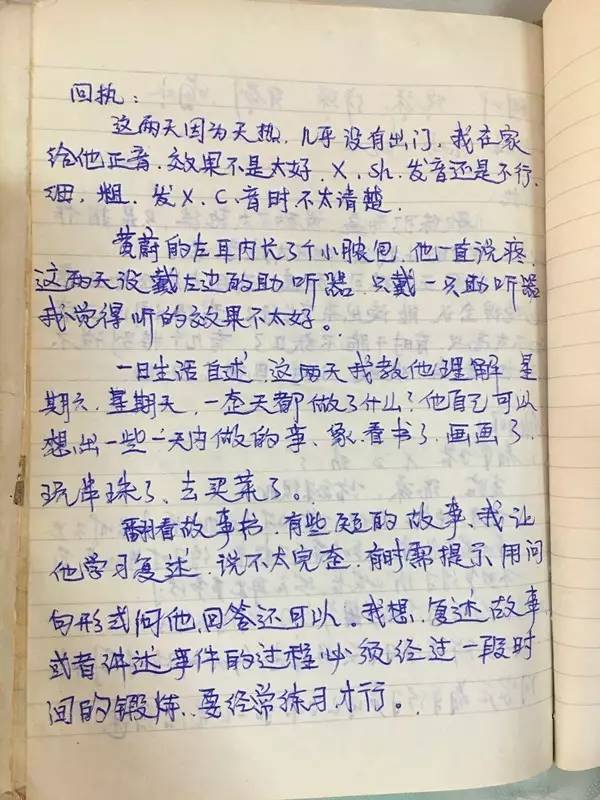 回执：
这两天因为天热，几乎没有出门，我在家
给他正音，效果不是太好，X，sh，发音还是不行，
细，粗，发X，C，音时不太清楚．
黄蔚的左耳内长了个小脓包，他一直说疼，
这两天没戴左边的助听器，只戴一只助听器
我觉得听的效果不太好。
一日生活自述，这两天我教他理解星
期六、星期天，一整天都做了什么？他自己可以
想出一些一天内做的事、象，看书了，画画了，
玩串珠了、去买菜了。
翻看故事书，有些短的故事、我让
他学习复述，说不太完整，有时需提示，用问
句形式问他，回答还可以。我想，复述故事
或者讲述事件的过程必须经过一段时
间的锻炼、要经常练习才行。